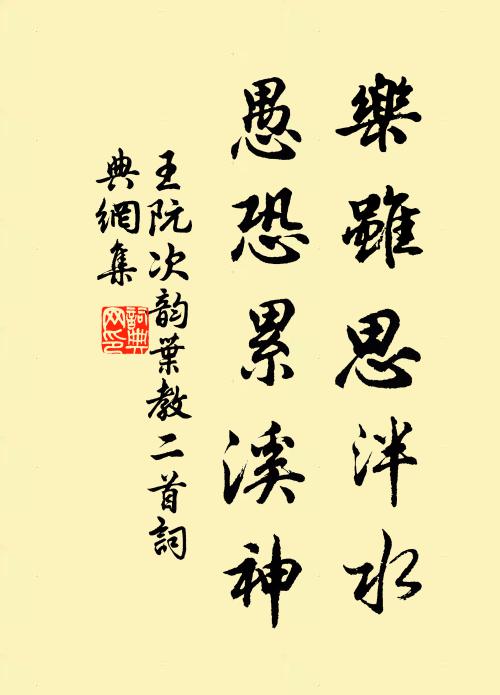 樂雖思泮水
愚恐累溪神
王阮次韵葉教二首詞
典網集
詞典
网印